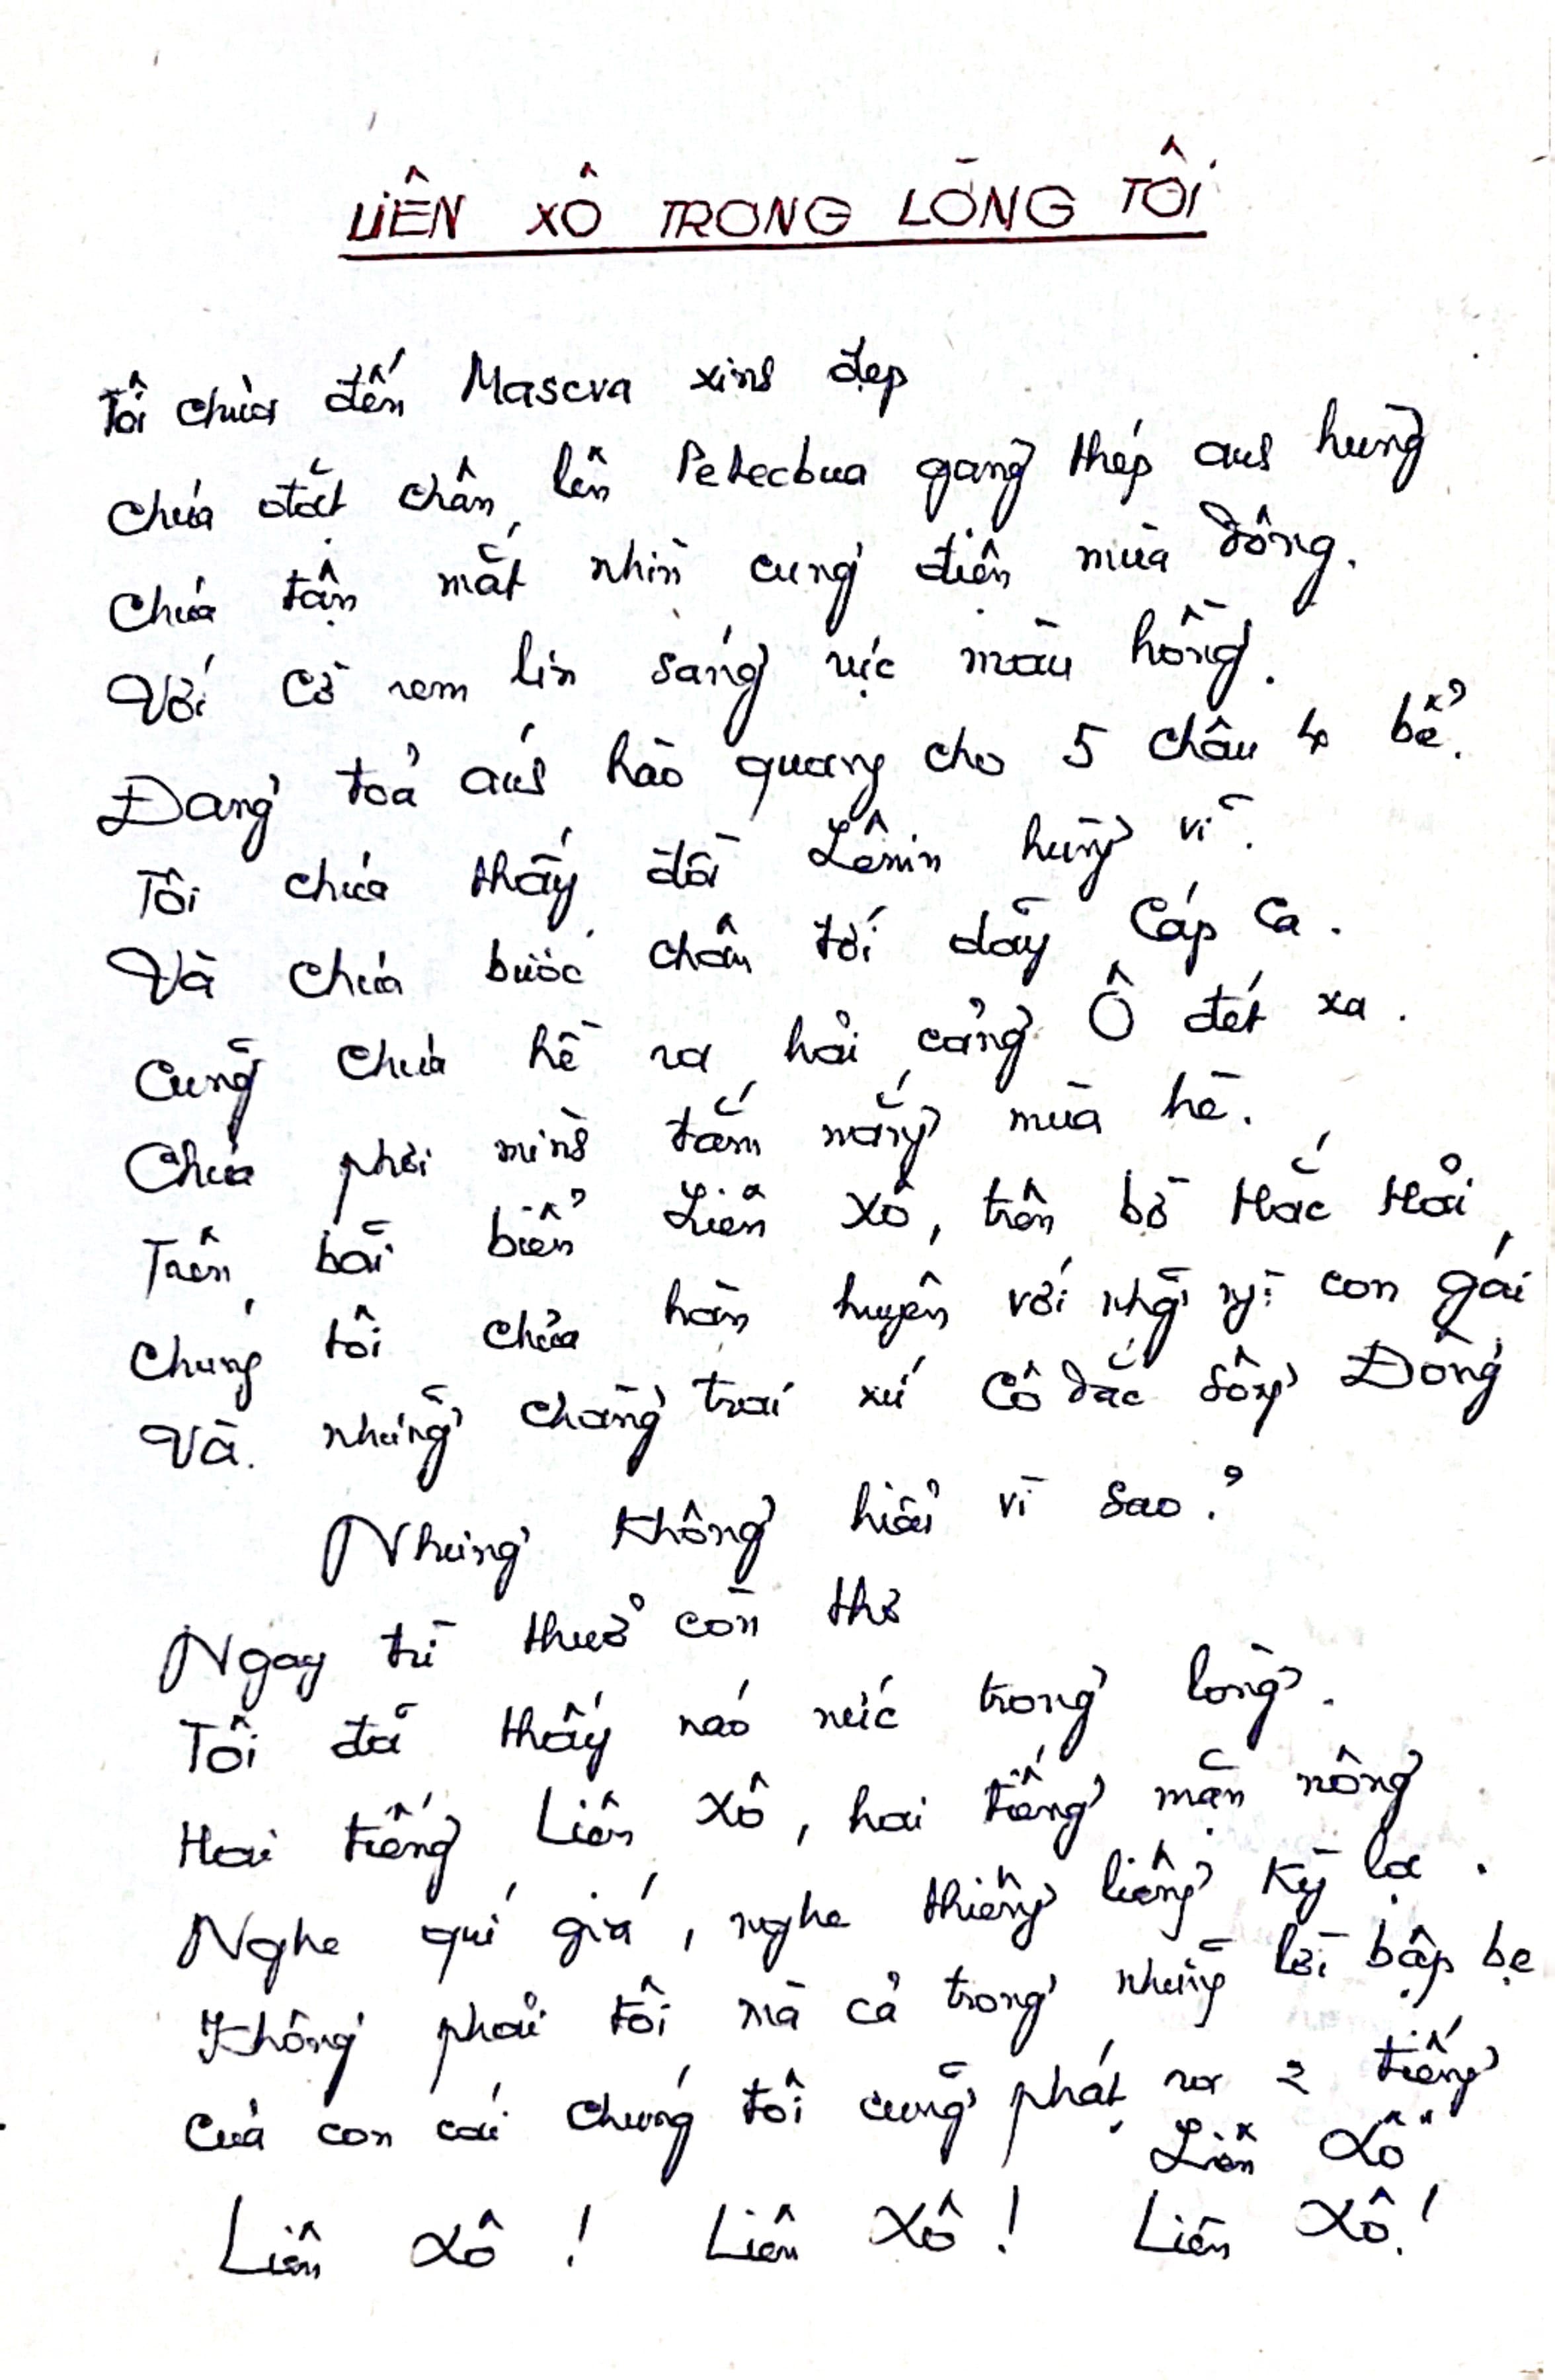 LIÊN XÔ TRONG LÒNG TÔI
Tôi chưa đến Mascva xinh đẹp
Chưa đặt chân lên Petecbua gang thép anh hùng
Chưa tận mắt nhìn cung điện mùa đông.
Với Cờ rem lin sáng rực màu hồng.
Đang toả ánh hào quang cho 5 châu 4 bể.
Tôi chưa thấy đồi Lênin hùng vĩ.
Và chưa bước chân tới dãy Cáp Ca.
Cũng chưa hề ra hải cảng Ô đét xa.
Chưa phơi mình tắm nắng mùa hè.
Trên bãi biển Liên Xô, trên bờ Hắc Hải
Chúng tôi chưa hàn huyên với nhg̃ ng: con gái
Và những chàng trai xứ Cô dắc sông Đông
Nhưng không hiểu vì sao?
Ngay từ thuở còn thơ
Tôi đã thấy náo nức trong lòng.
Hai tiếng Liên Xô, hai tiếng mặn nồng
Nghe quí giá, nghe thiêng liêng kỳ lạ.
Không phải tôi mà cả trong những lời bập bẹ
Của con cái chúng tôi cũng phát ra 2 tiếng
Liên Xô"
Liên Xô! Liên Xô! Liên Xô!